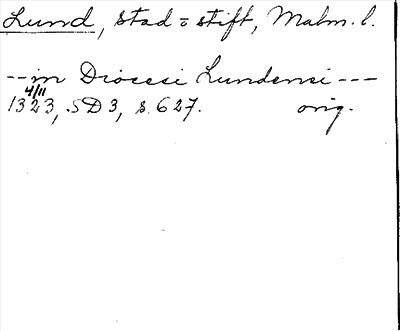 Lund, stad = stift, Malm. l.
-- in Diocesi Lundensi ---
4/11
1323, SD 3, s. 627. orig.